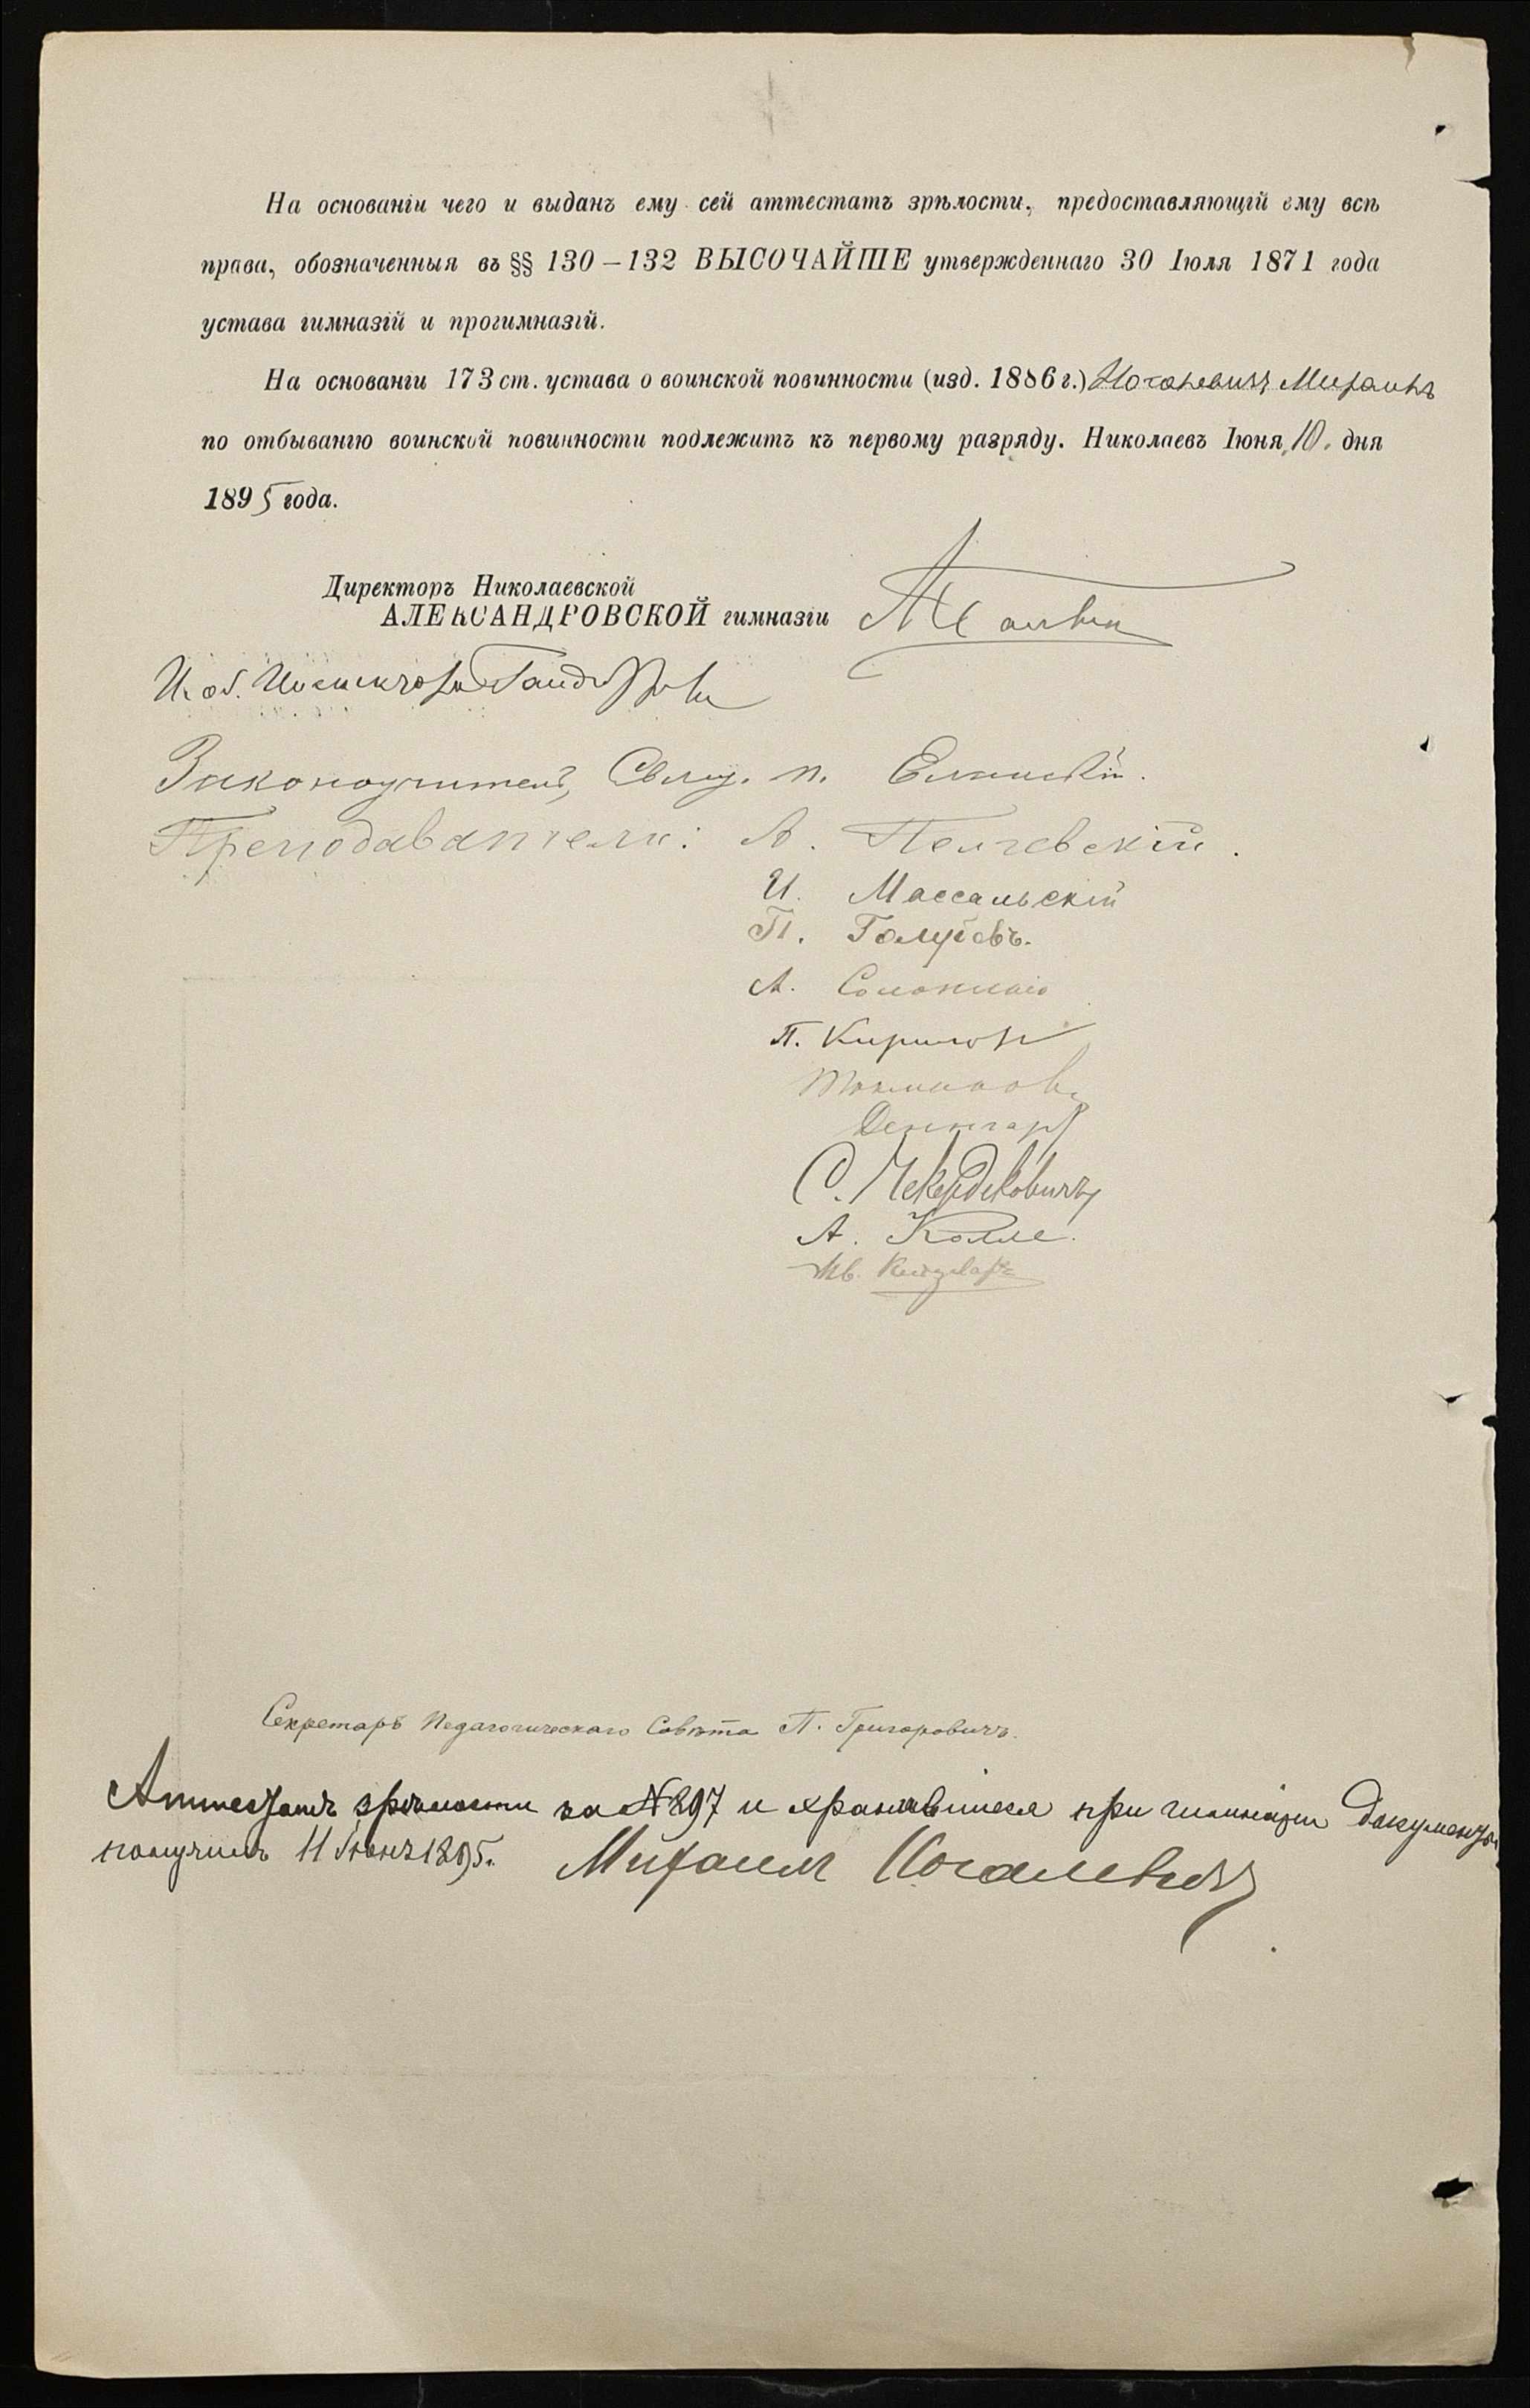 На основаніи чего и выданъ ему сей аттестатъ зрѣлости, предоставляющій ему всѣ
права, обозначенныя въ §§ 130–132 ВЫСОЧАЙШЕ утвержденнаго 30 Іюля 1871 года
устава гимназій и прогимназій.
На основаніи 173 ст. устава о воинской повинности (изд. 1886 г.) Михаилъ
по отбыванію воинской повинности подлежитъ къ первому разряду. Николаевъ Іюня 10 дня
1895 года.
Директоръ Николаевской
АЛЕКСАНДРОВСКОЙ гимназіи
И. об. Инспектора
Законоучитель, Свящ. п.
Преподаватели: А.
И. Массальскій
П. Голубевъ.
А.
П.
С.
А. Колле.
Секретарь Педагогическаго Совѣта П. Григоровичъ.
Аттестатъ зрѣлости за № 897 и хранившіеся при гимназіи документы
получилъ 11 Іюня 1895. Михаилъ